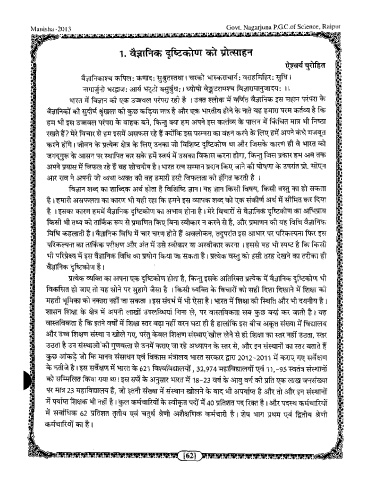 Manisha -2013
Govt. Nagarjuna P.G.C.of Science, Raipur
1. वैज्ञानिक दृष्टिकोण को प्रोत्साहन
ऐश्वर्य पुरोहित
वैज्ञानिकाश्च कपिलः कणादः सुश्रुतस्तथा। चरको भास्कराचार्यः वराहमिहिरः सुधिः।
नागार्जुनो भरद्वाजः आर्य भट्टो बसुर्बुधः। ध्येयो वेङ्कटरामश्च विज्ञारामानुजादयः ।।
भारत में विज्ञान की एक उज्जवल परंपरा रही है । उक्त श्लोक में वर्णित वैज्ञानिक इस महान परंपरा के
वैज्ञानिकों की सुदीर्घ श्रृंखला को कुछ कड़िया मात्र है और एक भारतीय होने के नाते यह हमारा परम कर्तव्य है कि
हम भी इस उज्जवल परंपरा के वाहक बने, किन्तु क्या हम अपने इस कर्तव्य के पालन में किंचित मात्र भी निष्ठा
रखते हैं? मेरे विचार से हम इसमें असफल रहे हैं क्योंकि इस परम्परा का वहन करने के लिए हमें अपने कंधे मजबूत
करने होंगे। जीवन के प्रत्येक क्षेत्र के लिए उनका जो विशिष्ट दृष्टिकोण था और जिसके कारण ही वे भारत को
जगद्गुरू के आसन पर स्थापित कर सके हमें स्वयं में उसका विकास करना होगा, किन्तु जिस प्रकार हम अब तक
अपने प्रयास में विफल रहे हैं वह शोचनीय है। भारत रत्न सम्मान प्रदान किए जाने की घोषणा के उपरांत प्रो. सीएन
आर राव ने अपनी जो व्यथा व्यक्त की वह हमारी इसी विफलता को इंगित करती है ।
विज्ञान शब्द का शाब्दिक अर्थ होता है विशिष्ट ज्ञान। यह ज्ञान किसी विषय, किसी वस्तु का हो सकता
है। हमारी असफलता का कारण भी यही रहा कि हमने इस व्यापक शब्द को एक संकीर्ण अर्थ में सीमित कर दिया
है । इसका कारण हममें वैज्ञानिक दृष्टिकोण का अभाव होना है। मेरे विचारों से वैज्ञानिक दृष्टिकोण का अभिप्राय
किसी भी तथ्य को तार्किक रूप से प्रमाणित किए बिना स्वीकार न करने से है, और प्रमाणन की यह विधि वैज्ञानिक
विधि कहलाती है। वैज्ञानिक विधि में चार चरण होते हैं अवलोकन, तदुपरांत इस आधार पर परिकल्पना फिर इस
परिकल्पना का तार्किक परीक्षण और अंत में उसे स्वीकार या अस्वीकार करना । इससे यह भी स्पष्ट है कि किसी
भी परिप्रेक्ष्य में इस वैज्ञानिक विधि का प्रयोग किया जा सकता है। प्रत्येक वस्तु को इसी तरह देखने का तरीका ही
वैज्ञानिक दृष्टिकोण है।
प्रत्येक व्यक्ति का अपना एक दृष्टिकोण होता है, किन्तु इसके अतिरिक्त प्रत्येक में वैज्ञानिक दृष्टिकोण भी
विकसित हो जाए तो यह सोने पर सुहागे जैसा है ।किसी व्यक्ति के विचारों को सही दिशा दिखाने में शिक्षा की
महती भूमिका को नकारा नहीं जा सकता । इस संदर्भ में भी ऐसा है। भारत में शिक्षा की स्थिति और भी दयनीय है।
शासन शिक्षा के क्षेत्र में अपनी लाखों उपलब्धियां गिना ले, पर वास्तविकता सब कुछ बयां कर जाती है। यह
वास्तविकता है कि इतने वर्षों में शिक्षा स्तर बढ़ा नहीं वरन घटा ही है हालांकि इस बीच अकूत संख्या में विद्यालय
और उच्च शिक्षण संस्था न खोले गए, परंतु केवल शिक्षण संस्थाएं खोल लेने से ही शिक्षा का स्तर नहीं उठता, स्तर
उठता है उन संस्थाओं की गुणवत्ता से उनमें कराए जा रहे अध्यापन के स्तर से, और इन संस्थानों का स्तर बताते हैं
कुछ आंकड़े जो कि मानव संसाधन एवं विकास मंत्रालय भारत सरकार द्वारा 2012-2011 में कराए गए सर्वेक्षण
के नतीजे है। इस सर्वेक्षण में भारत के 621 विश्वविद्यालयों , 32,974 महाविद्यालयों एवं 11,-95 स्वतंत्र संस्थानों
को सम्मिलित किया गया था। इस सर्वे के अनुसार भारत में 18-23 वर्ष के आयु वर्ग की प्रति एक लाख जनसंख्या
पर मात्र 23 महाविद्यालय है, जो इतनी संख्या में संस्थान खोलने के बाद भी अपर्याप्त है और तो और इन संस्थानों
में पर्याप्त शिक्षक भी नहीं है। कुल कर्मचारियों के स्वीकृत पदों में 40 प्रतिशत पद रिक्त है। और पदस्थ कर्मचारियों
में सर्वाधिक 62 प्रतिशत तृतीय एवं चतुर्थ श्रेणी अशैक्षणिक कर्मचारी है। शेष भाग प्रथम एवं द्वितीय श्रेणी
कर्मचारियों का है।
[62]